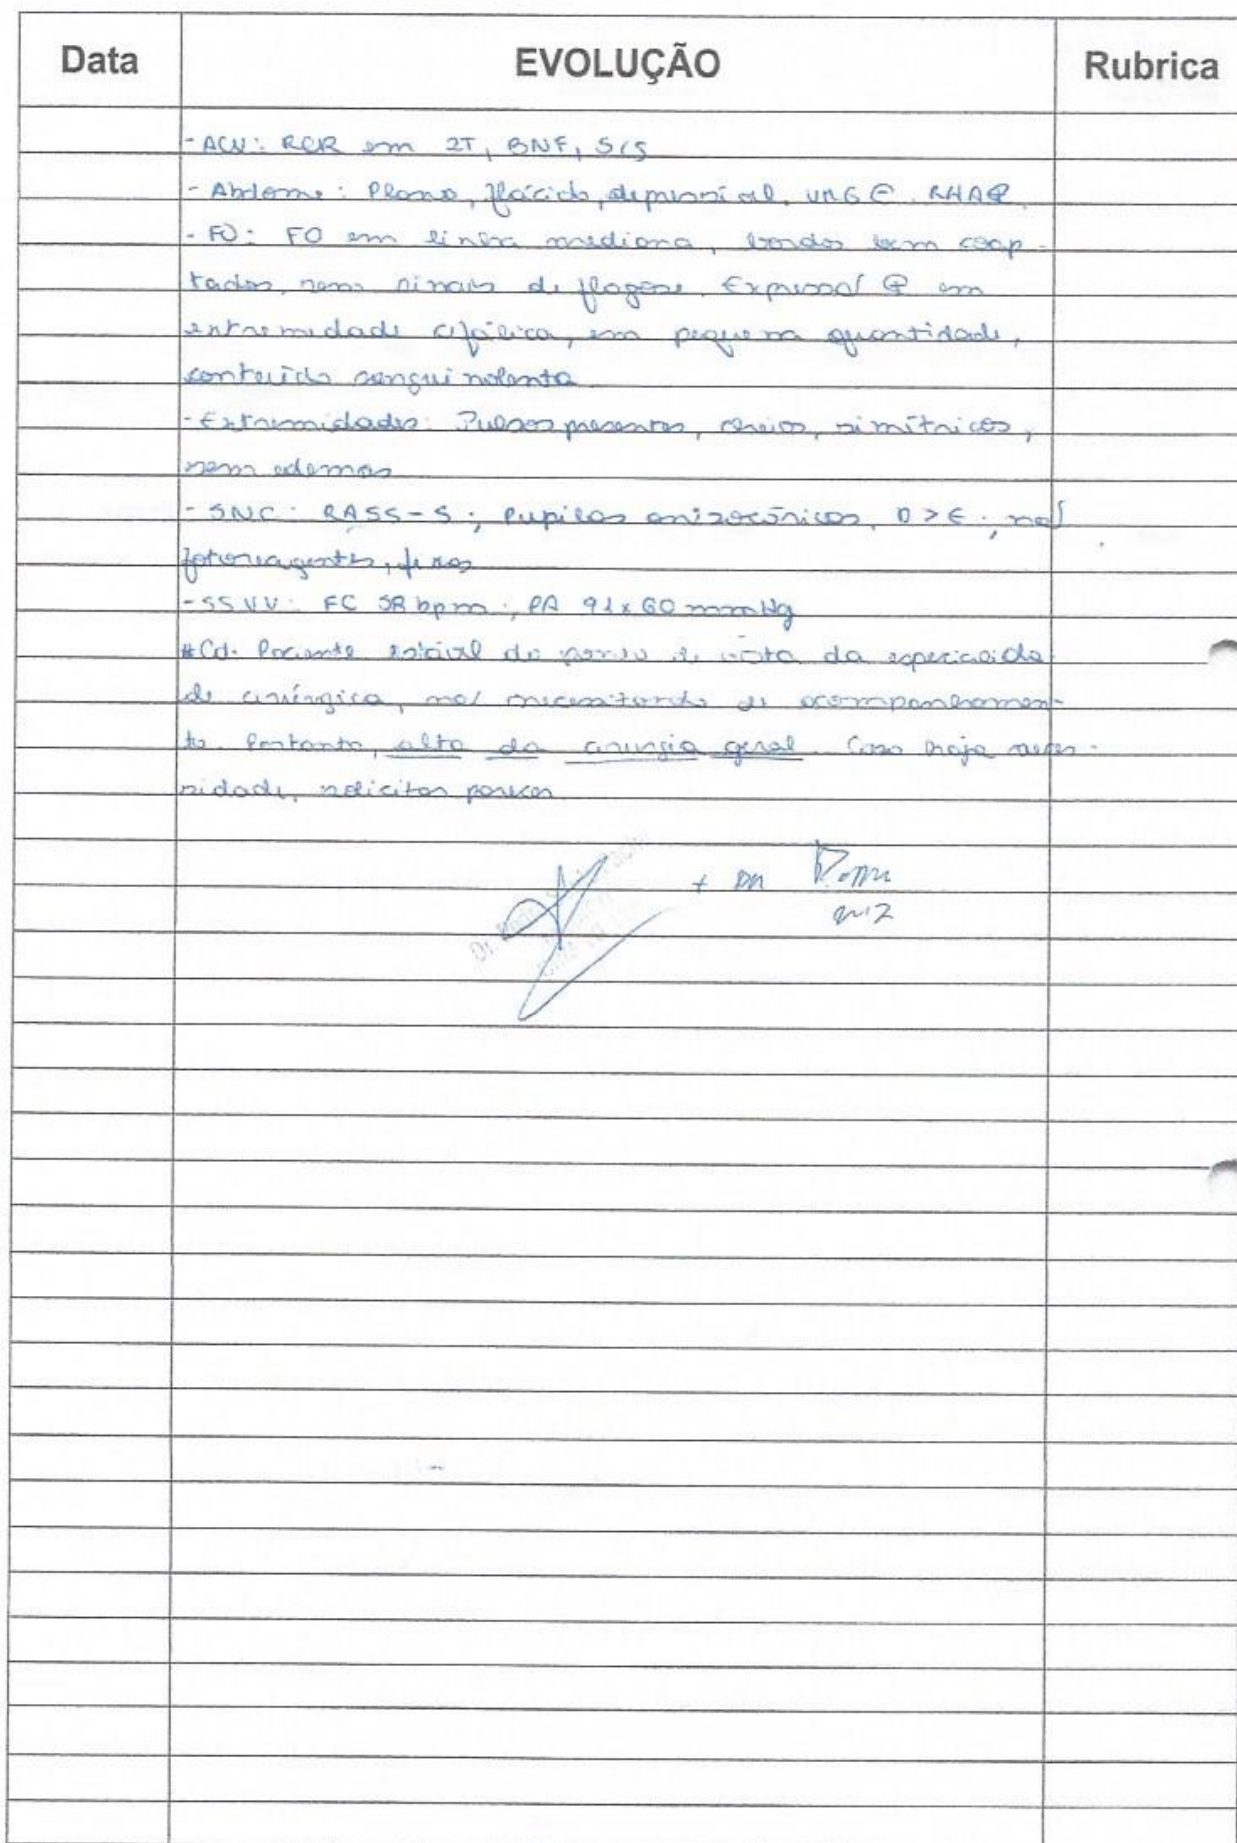 Data EVOLUÇÃO Rubrica
- ACV: RCR em 2T, BNF, S/S
- Abdome: Plano, flácido, depressível, VMG ⊖. RHA⊕.
- FO: FO em linha mediana, bordos bem coap-
tados, sem sinais de flogose. Expressão ⊕ em
extremidade cefálica, em pequena quantidade,
conteúdo sanguinolento
- Extremidades: Pulsos presentes, cheios, simétricos,
sem edemas
- SNC: RASS-5; Pupilas anisocóricas, D>E; não
fotoreagentes, fixas
- SSVV: FC bpm; PA 91x60 mmHg
#Cd: Paciente estável do ponto de vista da especialida
de cirúrgica, não necessitando de acompanhamen-
to. Portanto, alta da cirurgia geral. Caso haja neces-
sidade, solicitar parecer
Dr.
+ DR